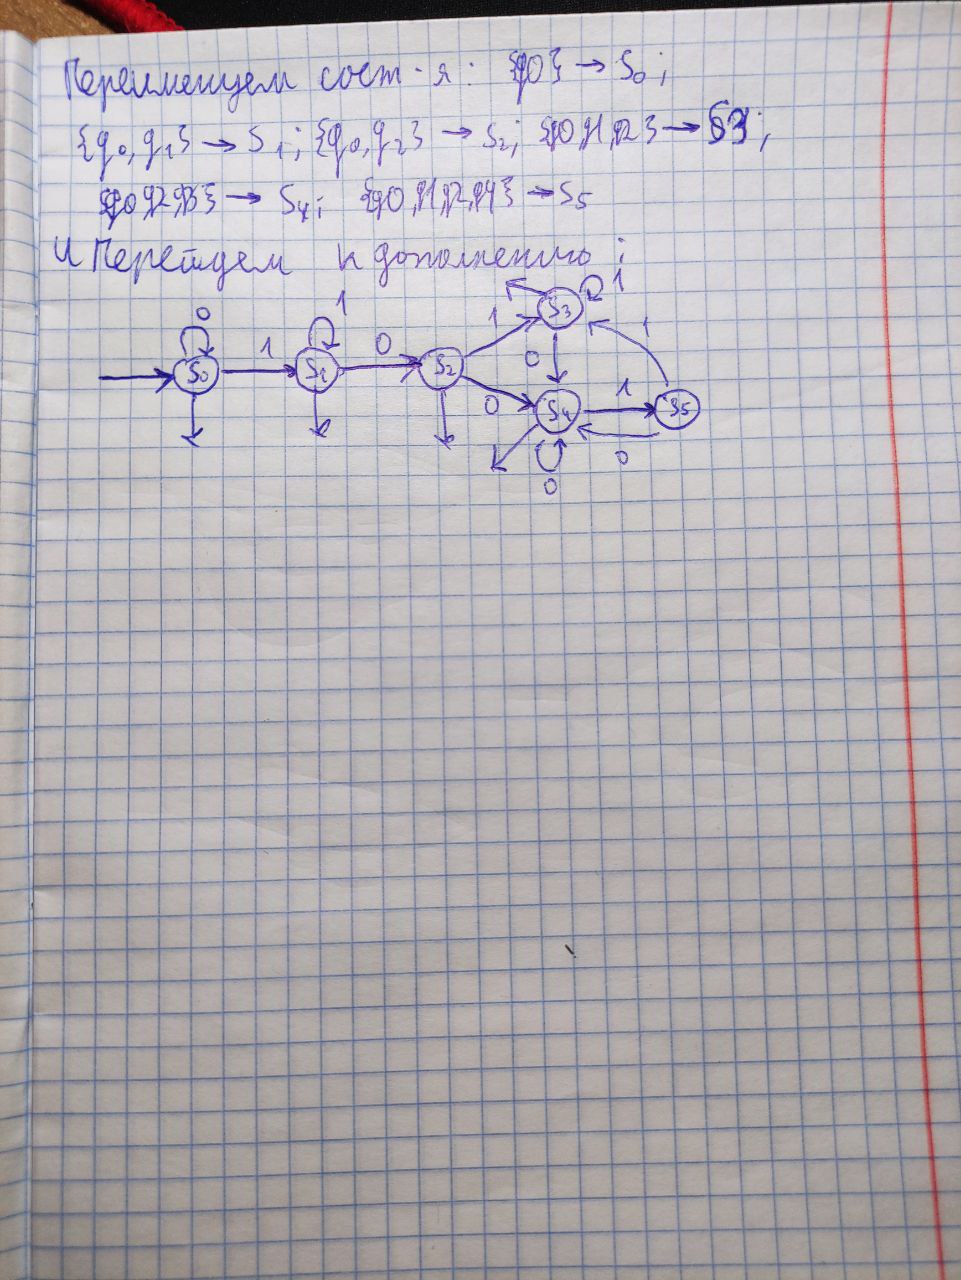 Переименуем сост-я: {q0} → S0;
{q0,q1} → S1; {q0,q2} → S2; {q0,q1,q2} → S3;
{q0,q2,q3} → S4; {q0,q1,q2,q4} → S5
И Перейдем к дополнению:
S3 1
0 1 1 1
1 0 0
S0 S1 S2
0 S4 1 S5
0
0